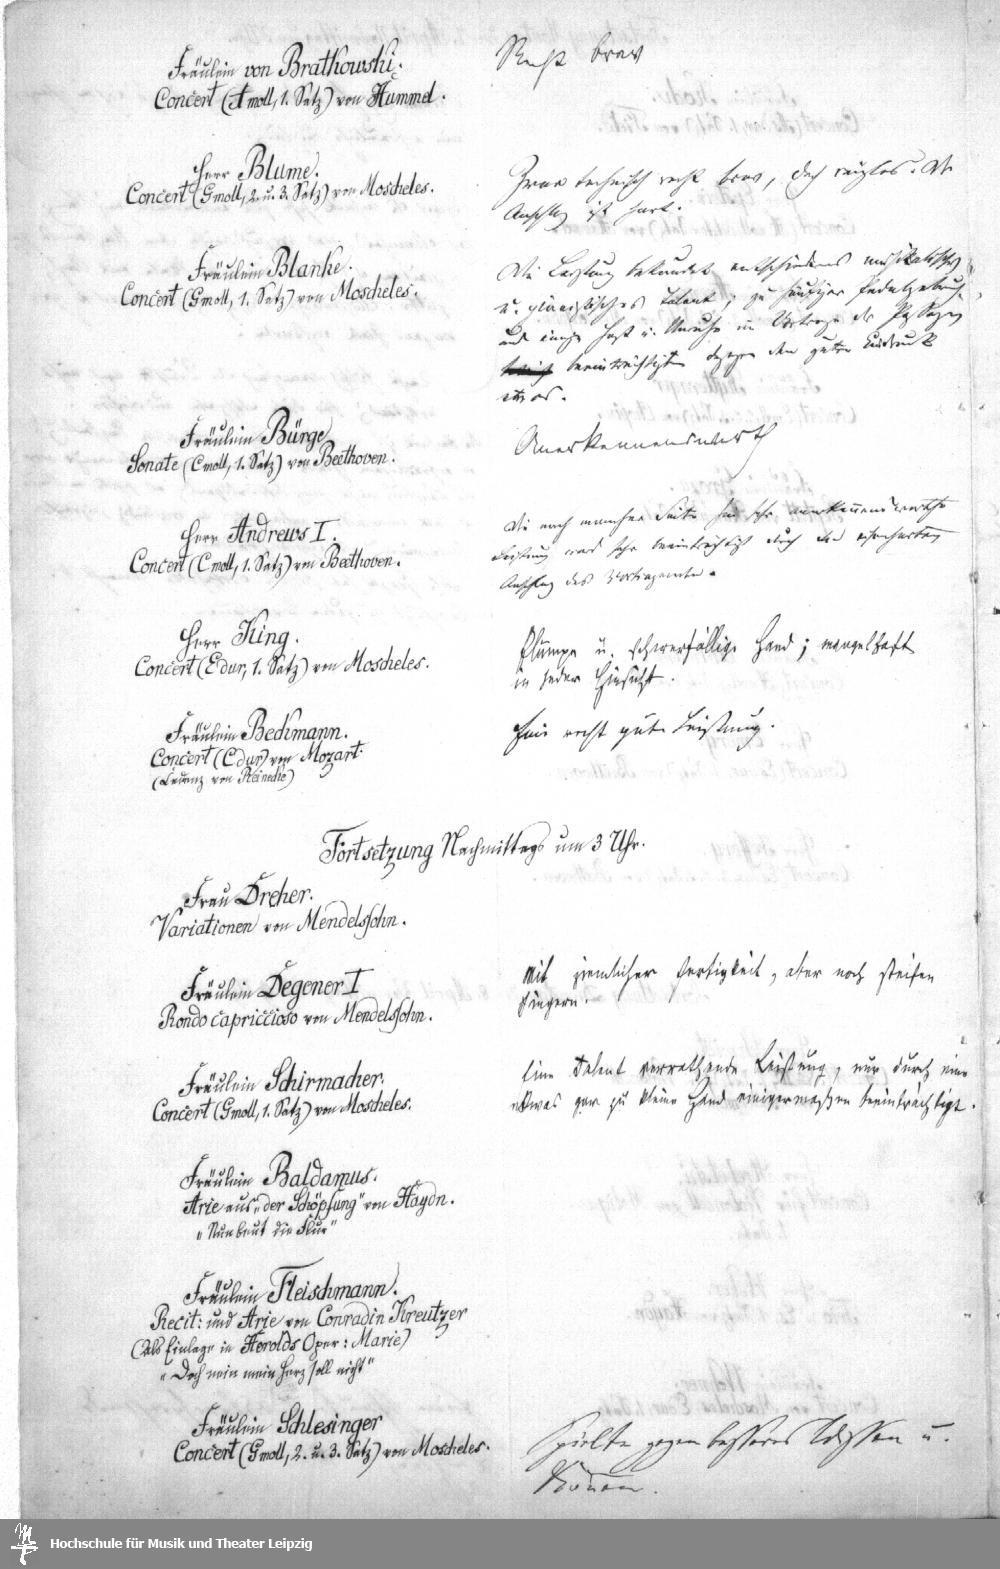 Fräulein von Bratkowski.
Concert (A moll, 1. Satz) von Hummel.
Recht brav
Herr Blume.
Concert (Gmoll, 2. u. 3. Satz) von Moscheles.
Zwar technisch recht brav, doch reizlos. Der
Anschlag ist hart.
Fräulein Blanke.
Concert (Gmoll, 1. Satz) von Moscheles.
Die Leistung bekundet entschiedenes musikalisches
u. pianistisches Talent; zu häufiger Pedalgebrauch
und einige Hast u. Unruhe im Vortrage der Passagen
beeinträchtigten dagegen den guten Eindruck
etwas.
Fräulein Bürge
Sonate (Cmoll, 1. Satz) von Beethoven.
Anerkennenswerth
Herr Andrews I.
Concert (Cmoll, 1. Satz) von Beethoven.
Die nach mancher Seite hin sehr anerkennenswerthe
Leistung ward sehr beeinträchtigt durch den
Anschlag des Vortragenden.
Herr King.
Concert (Edur, 1. Satz) von Moscheles.
Plumpe u. schwerfällige Hand; mangelhaft
in jeder Hinsicht.
Fräulein Beckmann.
Concert (Cdur) von Mozart.
(Cadenz von Reinecke)
Eine recht gute Leistung.
Fortsetzung Nachmittags um 3 Uhr.
Frau Dreher.
Variationen von Mendelssohn.
Fräulein Degener I
Rondo capriccioso von Mendelssohn.
Mit ziemlicher Fertigkeit, aber noch steifen
Fingern.
Fräulein Schirmacher.
Concert (Gmoll, 1. Satz) von Moscheles.
Eine Talent verrathende Leistung, nur durch eine
etwas gar zu kleine Hand einigermaßen beeinträchtigt.
Fräulein Baldamus.
Arie aus „der Schöpfung" von Haydn.
„Nun beut die Flur"
Fräulein Fleischmann.
Recit: und Arie von Conradin Kreutzer
(Als Einlage in Herolds Oper: Marie)
„Doch nein mein Herz soll nicht"
Fräulein Schlesinger
Concert (Gmoll, 2. u. 3. Satz) von Moscheles.
Spielte gegen besseres Wissen u.
Können.
Hochschule für Musik und Theater Leipzig